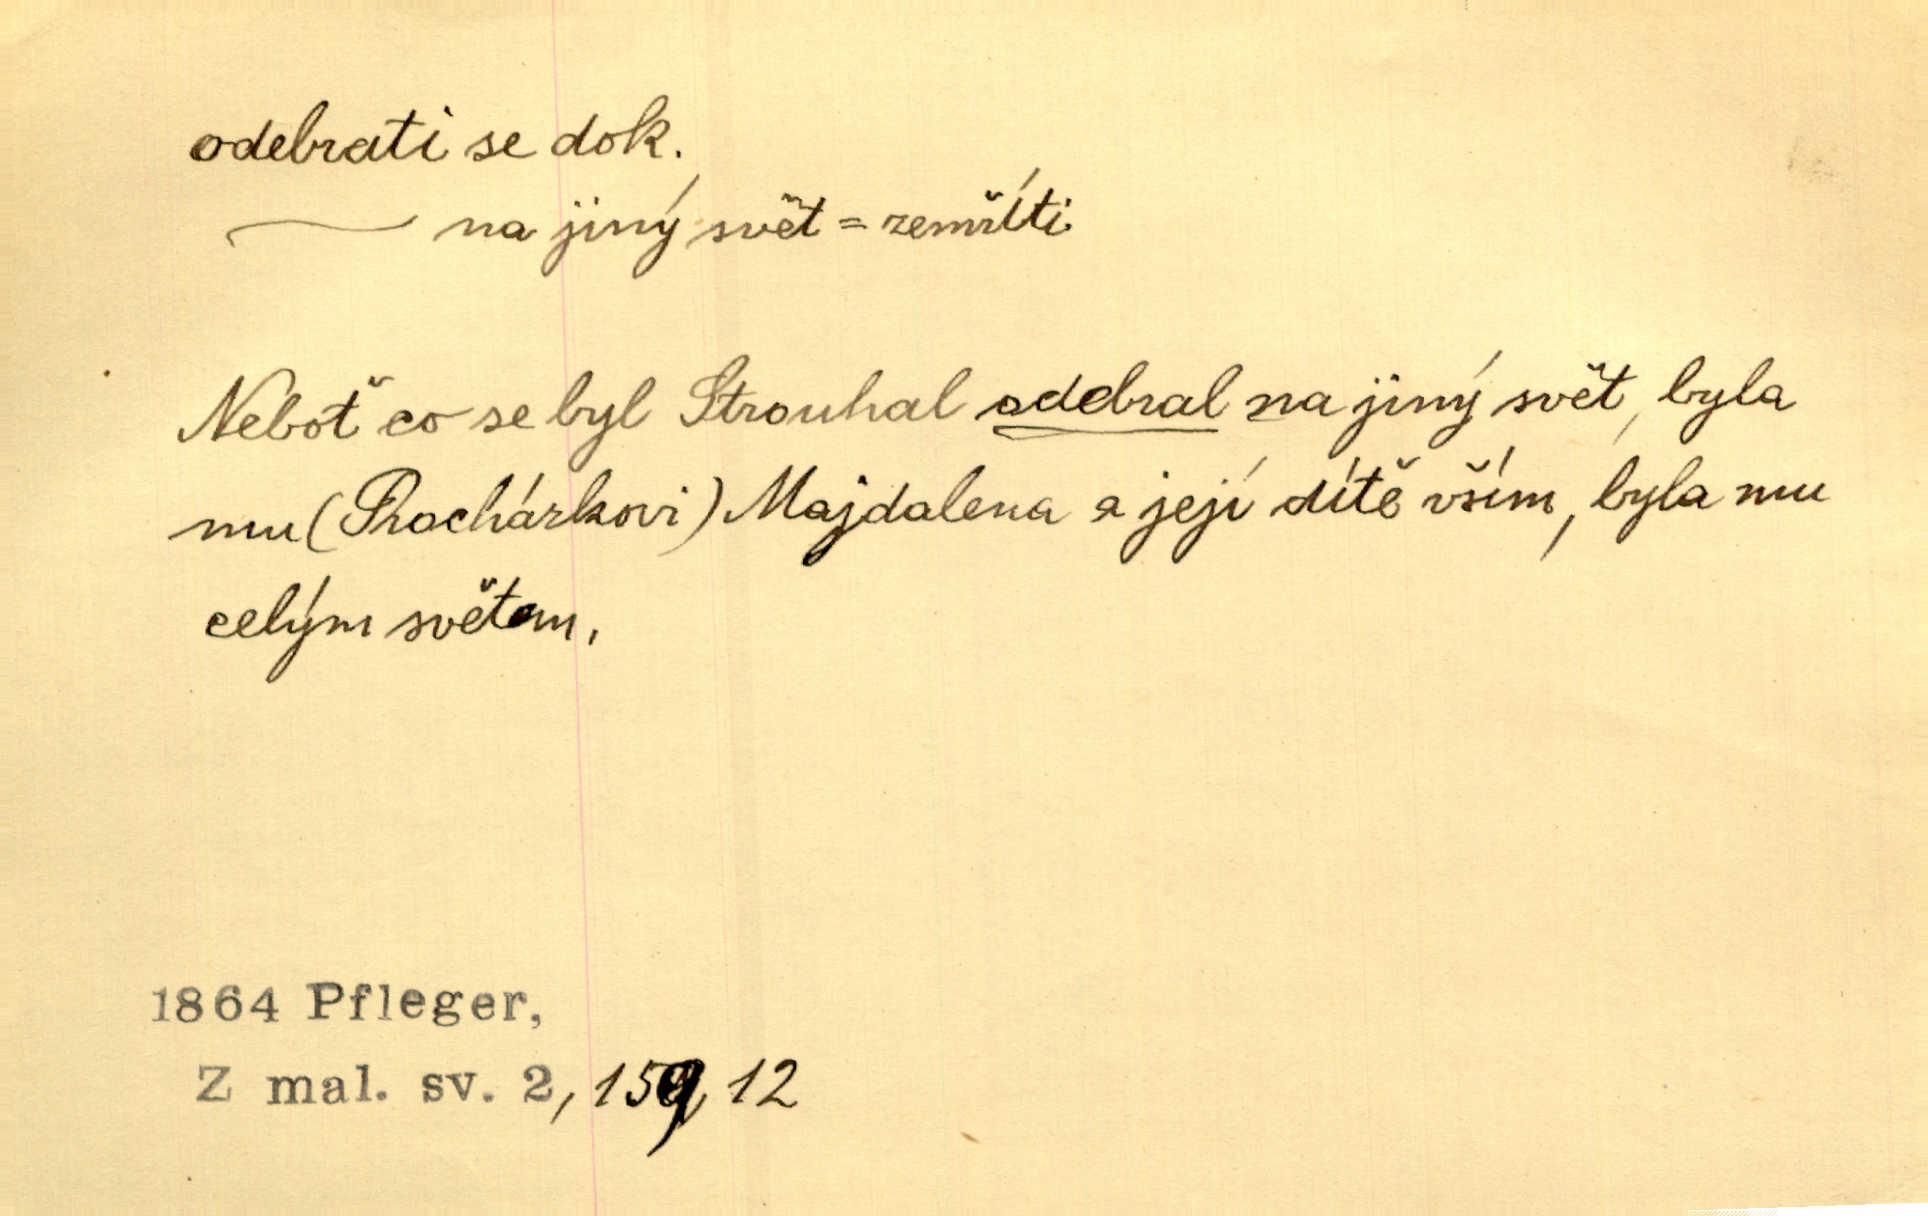 odebrati se dok.
— na jiný svět = zemříti
Neboť co se byl Strouhal odebral na jiný svět, byla
mu (Procházkovi) Majdalena a její dítě vším, byla mu
celým světem.
1864 Pfleger,
Z mal. sv. 2, 159, 12